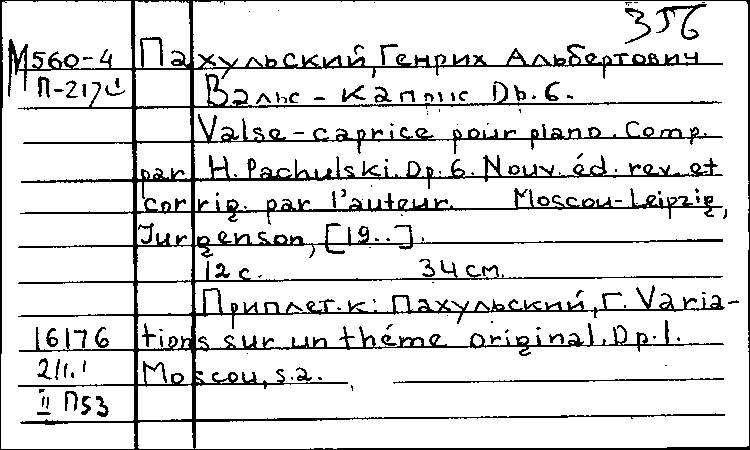 356
М560-4 Пахульский, Генрих Альбертович
П-217
Вальс-каприс Op. 6.
Valse-caprice pour piano. Comp.
par H. Pachulski. Op. 6. Nouv. éd. rev. et
corrig. par l'auteur. Moscou-Leipzig,
Jurgenson, [19..].
12 с. 34 см.
Приплет. к: Пахульский, Г. Varia-
16176 tions sur un théme original. Op. 1.
Moscou, s.a.
II П53